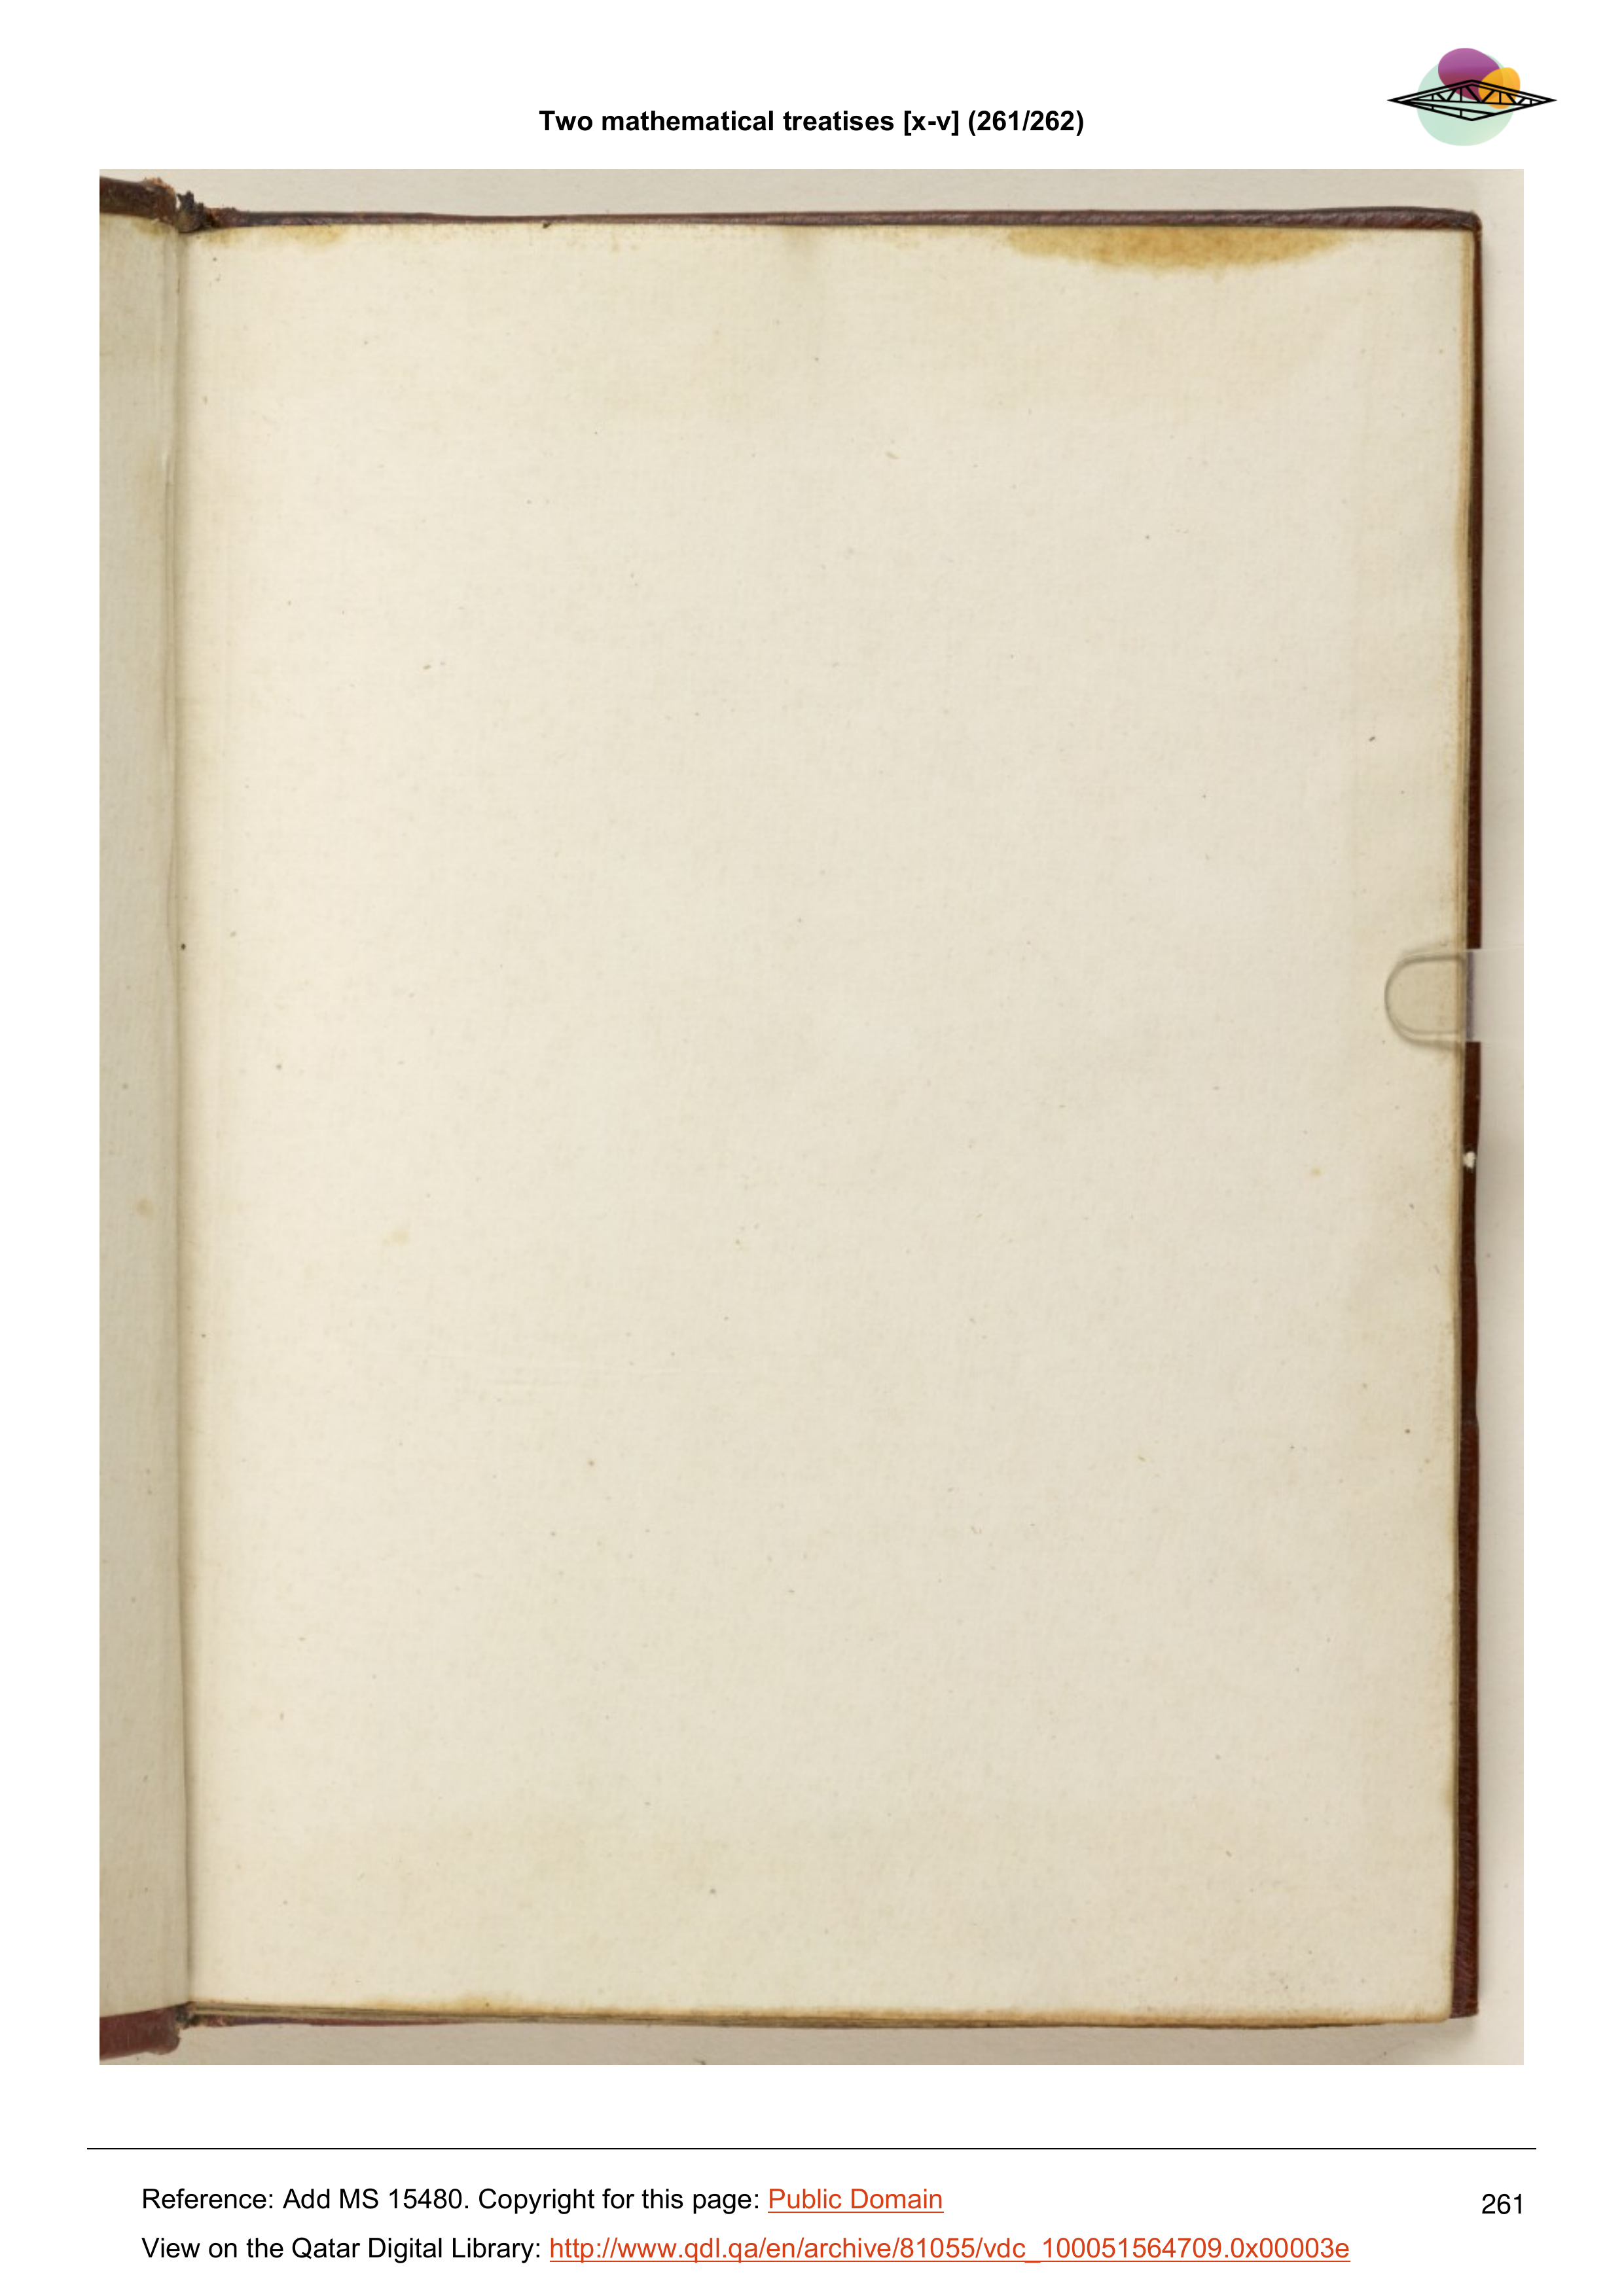 Two mathematical treatises [x-v] (261/262)
Reference: Add MS 15480. Copyright for this page: Public Domain
261
View on the Qatar Digital Library: http://www.qdl.qa/en/archive/81055/vdc_100051564709.0x00003e